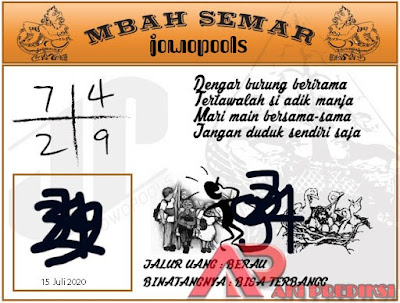 MBAH SEMAR
jowopools
7 4
2 9
Dengar burung berirama
Tertawalah si adik manja
Mari main bersama-sama
Jangan duduk sendiri saja
15 Juli 2020
JALUR UANG : BERAU
BINATANGNYA : BISA TERBANGG